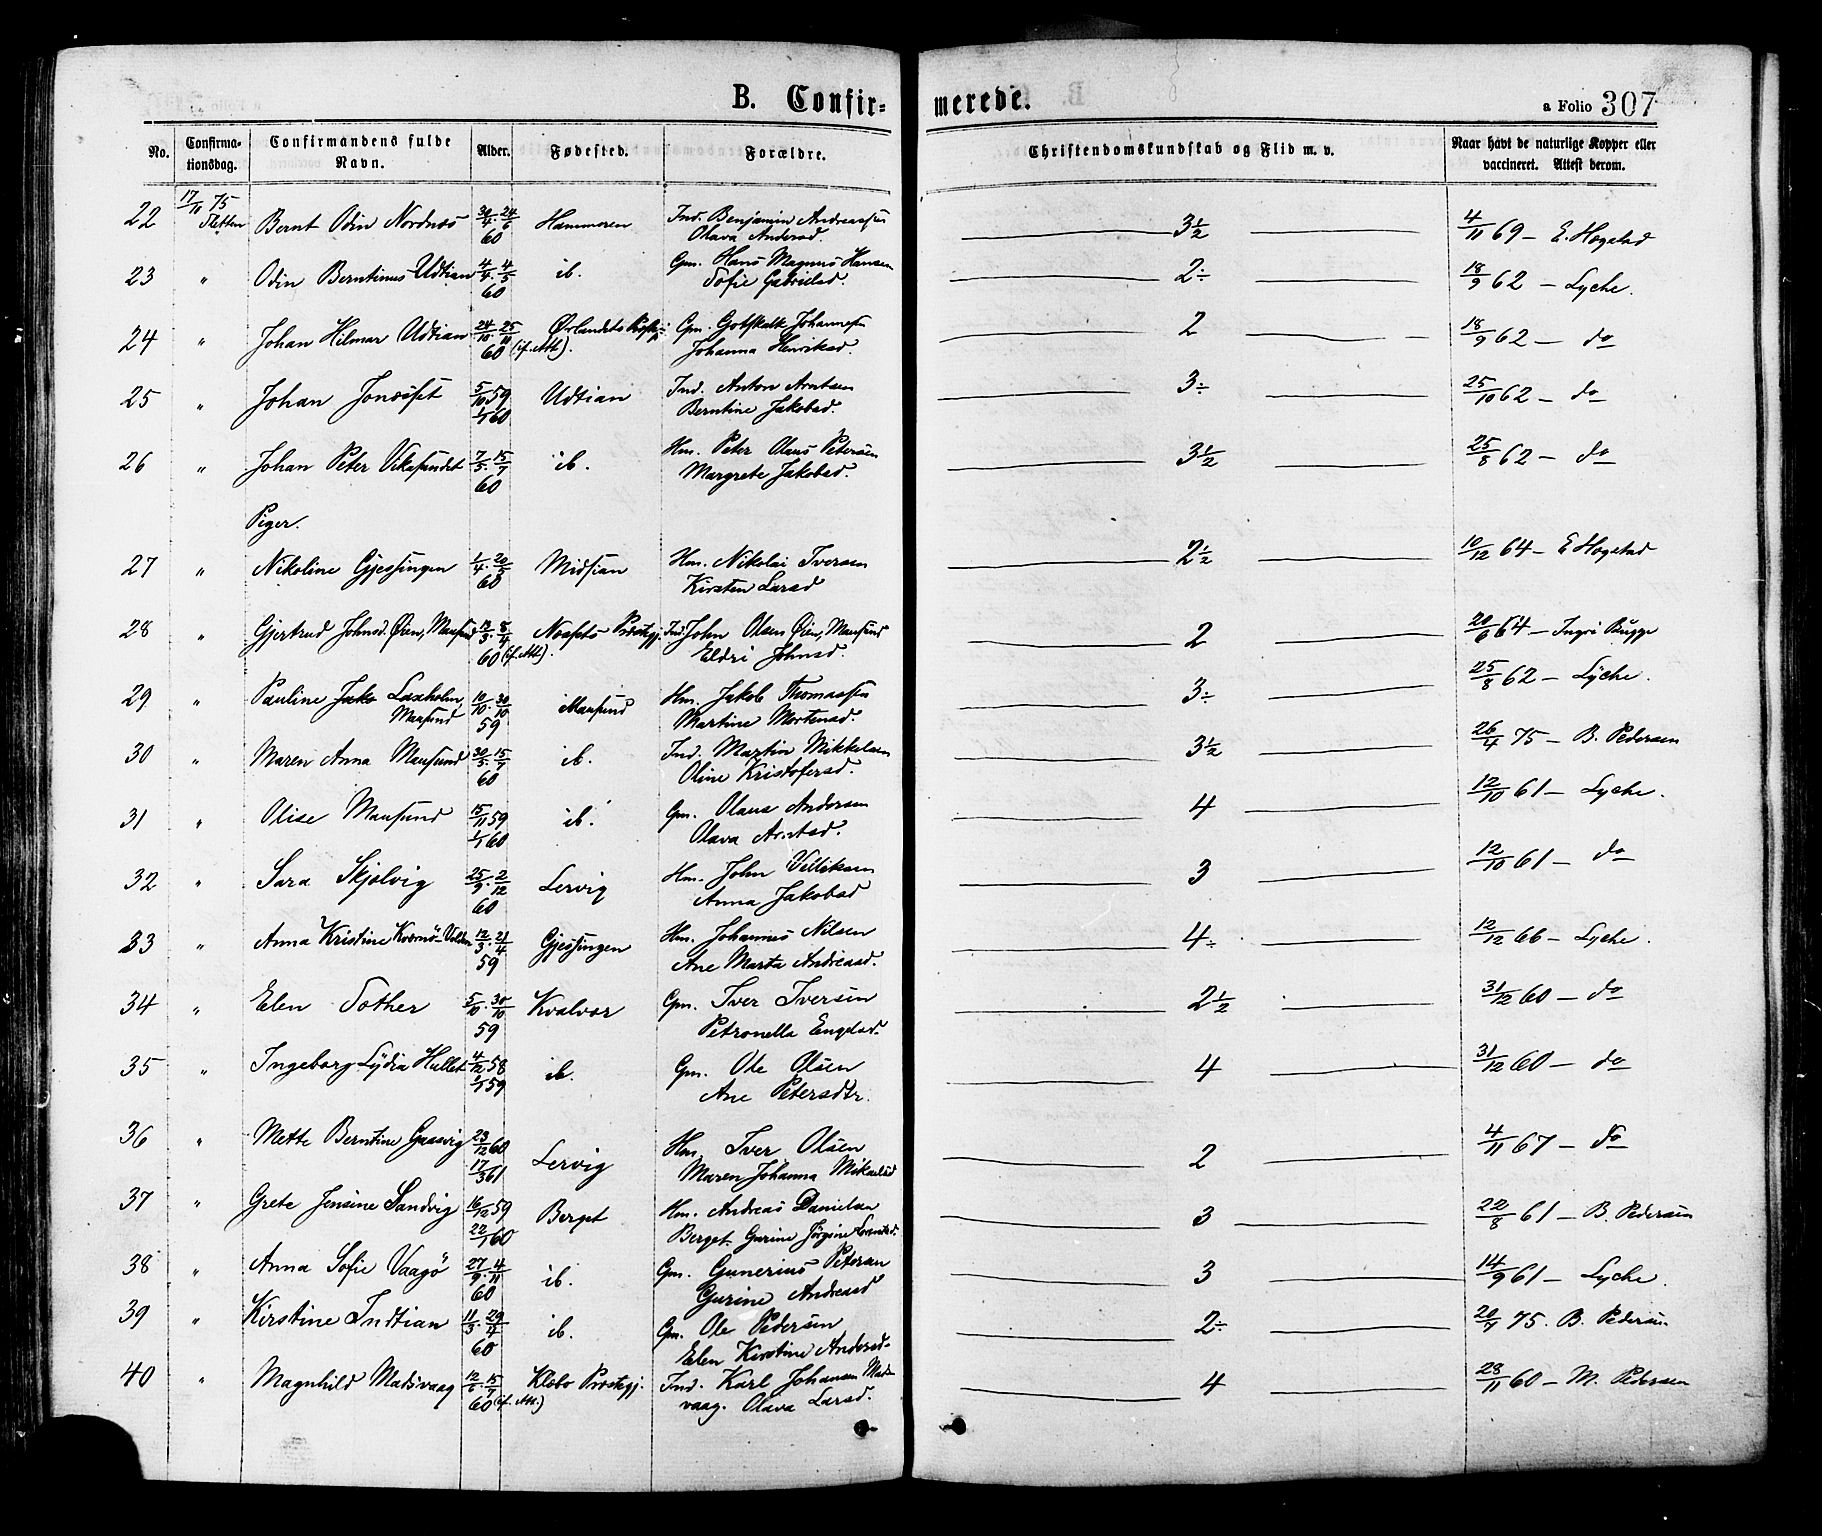 B. Confir- merede.
a Folio 307
No. Confirma-tionsdag. Confirmandens fulde Navn. Alder. Fødested. Forældre. Christendomskundskab og Flid m. v. Naar havt de naturlige Kopper eller vaccineret. Attest derom.
22 17/11 75 Sletten Bernt Odin Nordnæs 30/4. 24/6 60 Hammeren Ind. Benjamin Andreassen Olava Andersd. 3½ 4/11 69 – E. Hogstad
23 " Odin Berntinus Udtian 4/4. 4/5 60 ib. Gm. Hans Magnus Hansen Sofie Gabrielsd. 2÷ 18/9 62 – Lyche.
24 " Johan Hilmar Udtian 24/10. 25/11 60 Ørlandets (if. Att). Gm. Gotskalk Johannesen Johanna Henriksd. 2 18/9 62 – do
25 " Johan Jonsøset 5/10 59 1/1 60 Udtian Ind. Anton Arntsen Berntine Jakobsd. 3÷ 25/10 62 – do
26 " Johan Peter Vikasundet 7/5. 15/7 60 ib. Hm. Peter Olaus Petersen Margrete Jakobsd. 3½ 25/8 62 – do
Piger.
27 " Nikoline Gjessingen 1/4. 20/5 60 Midtian Hm. Nikolai Iversen Kirsten Larsd 2½ 10/12 64 – E Hogstad
28 " Gjertrud Johnsd. Øien, Mausund 13/3. 8/4 60 Nossets Præstegj. (if. Att). Ind. John Olsen Øien, Mausund Eldri Johnsd. 2 20/6 64 – Ingri Rugge
29 " Pauline Jako Laxholm, Mausund 10/10. 30/10 59 Mausund Hm. Jakob Thomassen Martine Mortensd. 3÷ 25/8 62 – Lyche.
30 " Maren Anna Mausund 30/5. 15/7 60 ib. Ind. Martin Mikkelsen Oline Kristofersd. 3½ 26/4 75 – B. Pedersen
31 " Olise Mausund 15/11 59 1/1 60 ib. Gm. Olaus Andersen Olava Arntsd. 4 12/10 61 – Lyche.
32 " Sara Skjølvig 25/9. 2/12 60 Lervig Hm. John Villiksen Anna Jakobsd 3 12/10 61 – do
33 " Anna Kristine Kværnö-Valen 12/3. 21/4 59 Gjessingen Hm. Johannes Nilsen Ane Marta Andreasd. 4÷ 12/12 66 – Lyche.
34 " Elen Sother 5/10. 30/10 59 Kvalvær Gm. Iver Iversen Petronella Engelsd. 2½ 31/12 60 – do
35 " Ingeborg Lydia Hallet 4/12 58 1/1 59 ib. Gm. Ole Olsen Ane Petersdtr. 4 31/12 60 – do
36 " Mette Berntine Gaasvig 23/12 60 17/3 61 Lervig Hm. Iver Olsen Maren Johanna Mikaelsd 2 4/11 67 – do
37 " Grete Jensine Sandvig 16/12 59 22/1 60 Berget Hm. Andreas Danielsen Berget. Gurine Jørgine 3 22/8 61 – B. Pedersen
38 " Anna Sofie Vaagö 27/9. 4/11 60 ib. Gm. Gunerius Petersen Gurine Andreasd 3 14/9 61 – Lyche.
39 " Kirstine Indtian 11/3. 29/4 60 ib. Gm. Ole Pedersen Elen Kirstine Andersd. 2÷ 20/7 75. B. Pedersen
40 " Magnhild Madsvaag 12/6. 15/7 60 Klæbo Præstegj. (if. Att.) Ind. Karl Johansen Madsvaag. Olava Larsd. 4 23/11 60 – M. Pedersen